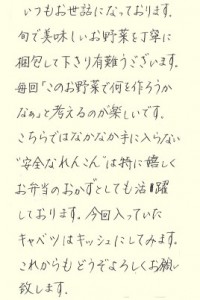 いつもお世話になっております。
旬で美味しいお野菜を丁寧に
梱包して下さり有難うございます。
毎回「このお野菜で何を作ろうか
なぁ」と考えるのが楽しいです。
こちらではなかなか手に入らない
"安全なれんこん"は特に嬉しく
お弁当のおかずとしても活躍
しております。今回入っていた
キャベツはキッシュにしてみます。
これからもどうぞよろしくお願い
致します。